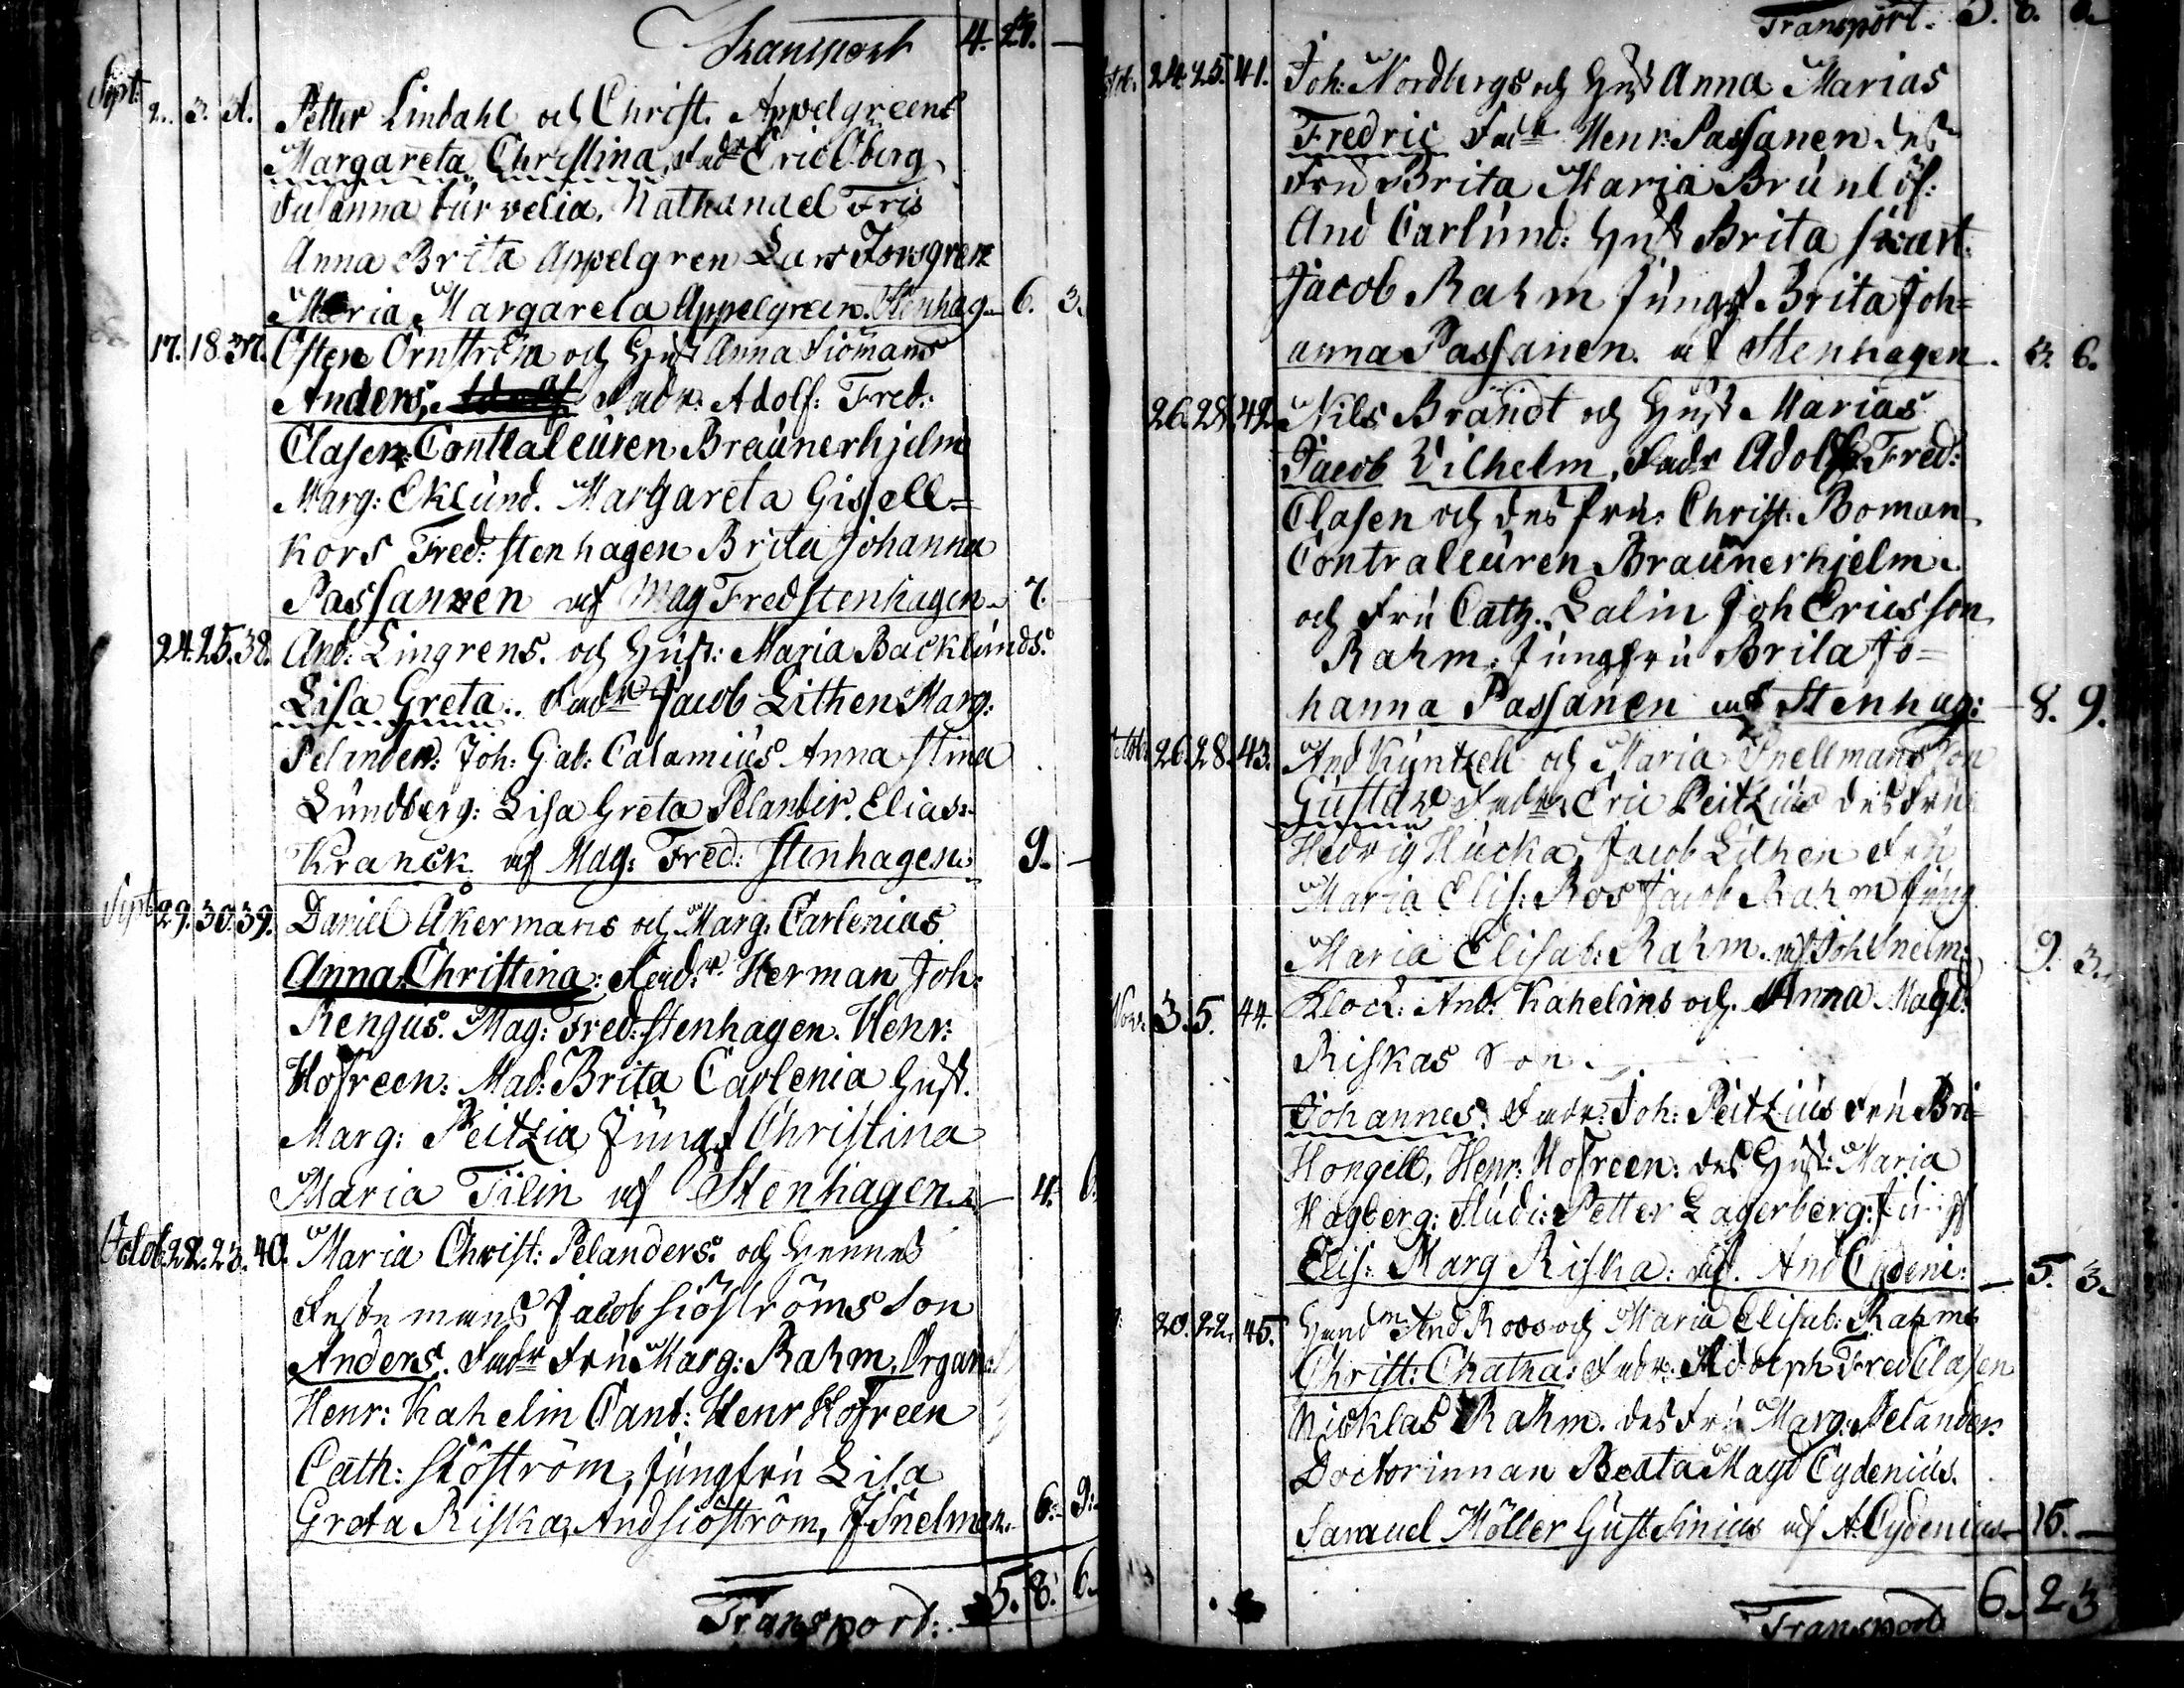 Transport 4. 24. —
Sept. 2. 3. Petter Lindahl och Christ. Appelgrens
Margareta Christina, Fadr Eric Öberg,
Susanna Nathanael Fris
Anna Brita Appelgren Lars Forsgren
Maria Margareta Appelgren. Stenhag- 6. 3.
17. 18. 37. Östen Örnström och Hust Anna Siömans
Anders, Fadr: Adolf: Fred:
Clasen: Contraleuren Braunerhjelm
Marg: Eklund. Margareta Gissell-
kors Fred: Stenhagen Brita Johanna
Passanen af Mag Fred Stenhagen 7. —
24. 25. 38. And: Lingrens. och Hust: Maria Backlunds.
Lisa Greta.. Fadr Jacob Lithen Marg:
Pelander: Joh: Gab: Calamius Anna Stina
Lundberg: Lisa Greta Pelander. Elias
Kranck af Mag: Fred: Stenhagen. 9. —
Sept 29. 30. 39. Daniel Åkermans och Marg: Carlenias
Anna Christina: Fadr Herman Joh:
Rengus. Mag: Fred: Stenhagen. Henr:
Hofreen: Mad: Brita Carlenia Hust.
Marg: Peitzia Jungf Christina
Maria Tilin af Stenhagen. — 4. 6.
Octob. 22. 23. 40. Maria Christ: Pelanders och hennes
Fästemans Jacob Siöströms Son
Anders. Fadr Fru Marg: Rahm, Organ:
Henr: Kahelin Cant: Henr Hofreen
Cath: Siöström, Jungfru Lisa
Greta Riska, And Siöström, J Snelman. 6. 9.
Transport: 5. 8. 6.
Transport. 5. 8. 6.
24. 25. 41. Joh: Nordbergs och Hust Anna Marias
Fredric Fadr Henr: Passanen des
Fru Brita Maria Brunlöf:
And Carlund: Hust Brita Svart.
Jacob Rahm Jungf Brita Joh-
anna Passanen. af Stenhagen. 3. 6.
26. 28. 42. Nils Brandt och Hust Marias
Jacob Vilhelm, Fadr Adolf Fred:
Clasen och des fru: Christ: Boman
Contraleuren Braunerhjelm.
och Fru Cath. Salin Joh Ericsson
Rahm. Jungfru Brita Jo-
hanna Passanen af Stenhag: — 8. 9.
Octob. 26. 28. 43. And Kuntzell och Maria Snellmans Son
Gustav Fadr Eric Peitzius des Fru
Hedvig Hucka, Jacob Lithen Fru
Maria Elis: Ros Jacob Rahm Jung
Maria Elisab: Rahm. af Joh Snelm: 9. 3.
Nov. 3. 5. 44. Klock: And: Kahelins och Anna Magd:
Riskas Son.
Johannes: Fadr: Joh: Peitzius Fru Bri-
Hongell, Henr: Hofreen: des Hust: Maria
Hagberg: Studi: Petter Lagerberg: Jungf
Elis: Marg Riska: af. And Cydeni: — 5. 3.
20. 22. 45. Handm And Roos och Maria Elisab: Rahms
Christ: Chatha: Fadr: Adolph Fred Clasen
Nicklas Rahm. des Fru Marg: Pelander:
Doctorinnan Beata Magd Cydenius.
Samuel Möller Gust Sinius af A: Cydenius 15. —
Transport 6. 2 3